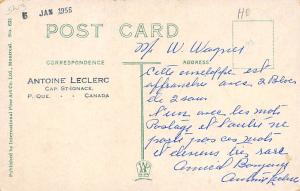 5 JAN 1956
POST CARD
CORRESPONDENCE
ADDRESS
ANTOINE LECLERC
CAP. ST-IGNACE,
P. QUE. - - CANADA
Published by International Fine Art Co. Ltd., Montreal.
W. Wagner
Cette enveloppe est
affranchie avec 2 Blocs
de 2 sous
L'un avec les mots
Postage et l'autre ne
porte pas ces mots
et devenu très rare
Amical Bonjour
Antoine Leclerc